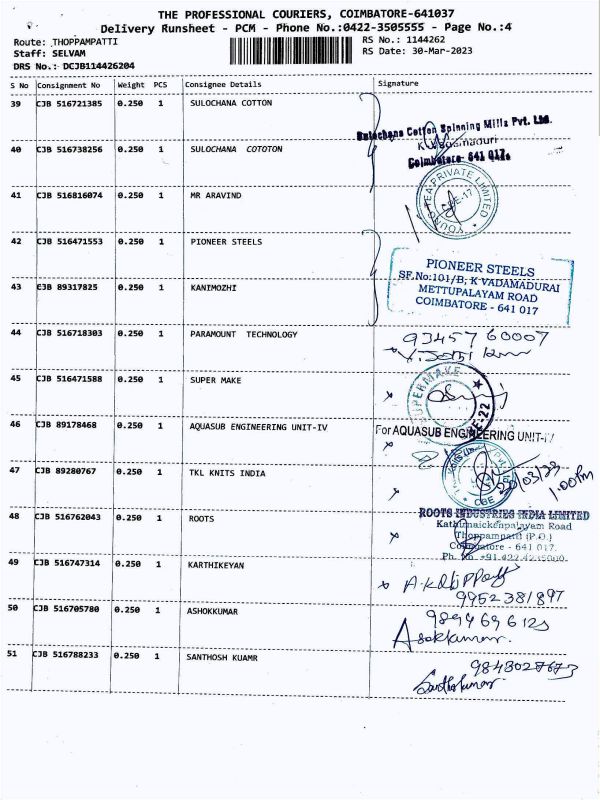 THE PROFESSIONAL COURIERS, COIMBATORE-641037
Delivery Runsheet - PCM - Phone No.:0422-3505555 - Page No.:4
Route: THOPPAMPATTI RS No.: 1144262
Staff: SELVAM RS Date: 30-Mar-2023
DRS No.: DCJB114426204
S No Consignment No Weight PCS Consignee Details Signature
39 CJB 516721385 0.250 1 SULOCHANA COTTON
Sulochana Cotton Spinning Mills Pvt. Ltd.
K.Vadamaduri
Coimbatore- 641 017.
40 CJB 516738256 0.250 1 SULOCHANA COTOTON
41 CJB 516816074 0.250 1 MR ARAVIND
TEA PRIVATE LIMITED
42 CJB 516471553 0.250 1 PIONEER STEELS
PIONEER STEELS
SF.No:101/B, K VADAMADURAI
METTUPALAYAM ROAD
COIMBATORE - 641 017
43 EJB 89317825 0.250 1 KANIMOZHI
44 CJB 516718303 0.250 1 PARAMOUNT TECHNOLOGY
9345760007
45 CJB 516471588 0.250 1 SUPER MAKE
SUPERMAKE
46 CJB 89178468 0.250 1 AQUASUB ENGINEERING UNIT-IV
For AQUASUB ENGINEERING UNIT-IV
47 CJB 89280767 0.250 1 TKL KNITS INDIA
CBE
1.00pm
48 CJB 516762043 0.250 1 ROOTS
ROOTS INDUSTRIES INDIA LIMITED
Kathirnaickenpalayam Road
Thoppampatti (P.O.)
Coimbatore - 641 017.
Ph. No. +91 422
49 CJB 516747314 0.250 1 KARTHIKEYAN
9952381897
50 CJB 516705780 0.250 1 ASHOKKUMAR
Asokkumar.
51 CJB 516788233 0.250 1 SANTHOSH KUAMR
Santhoshkumar